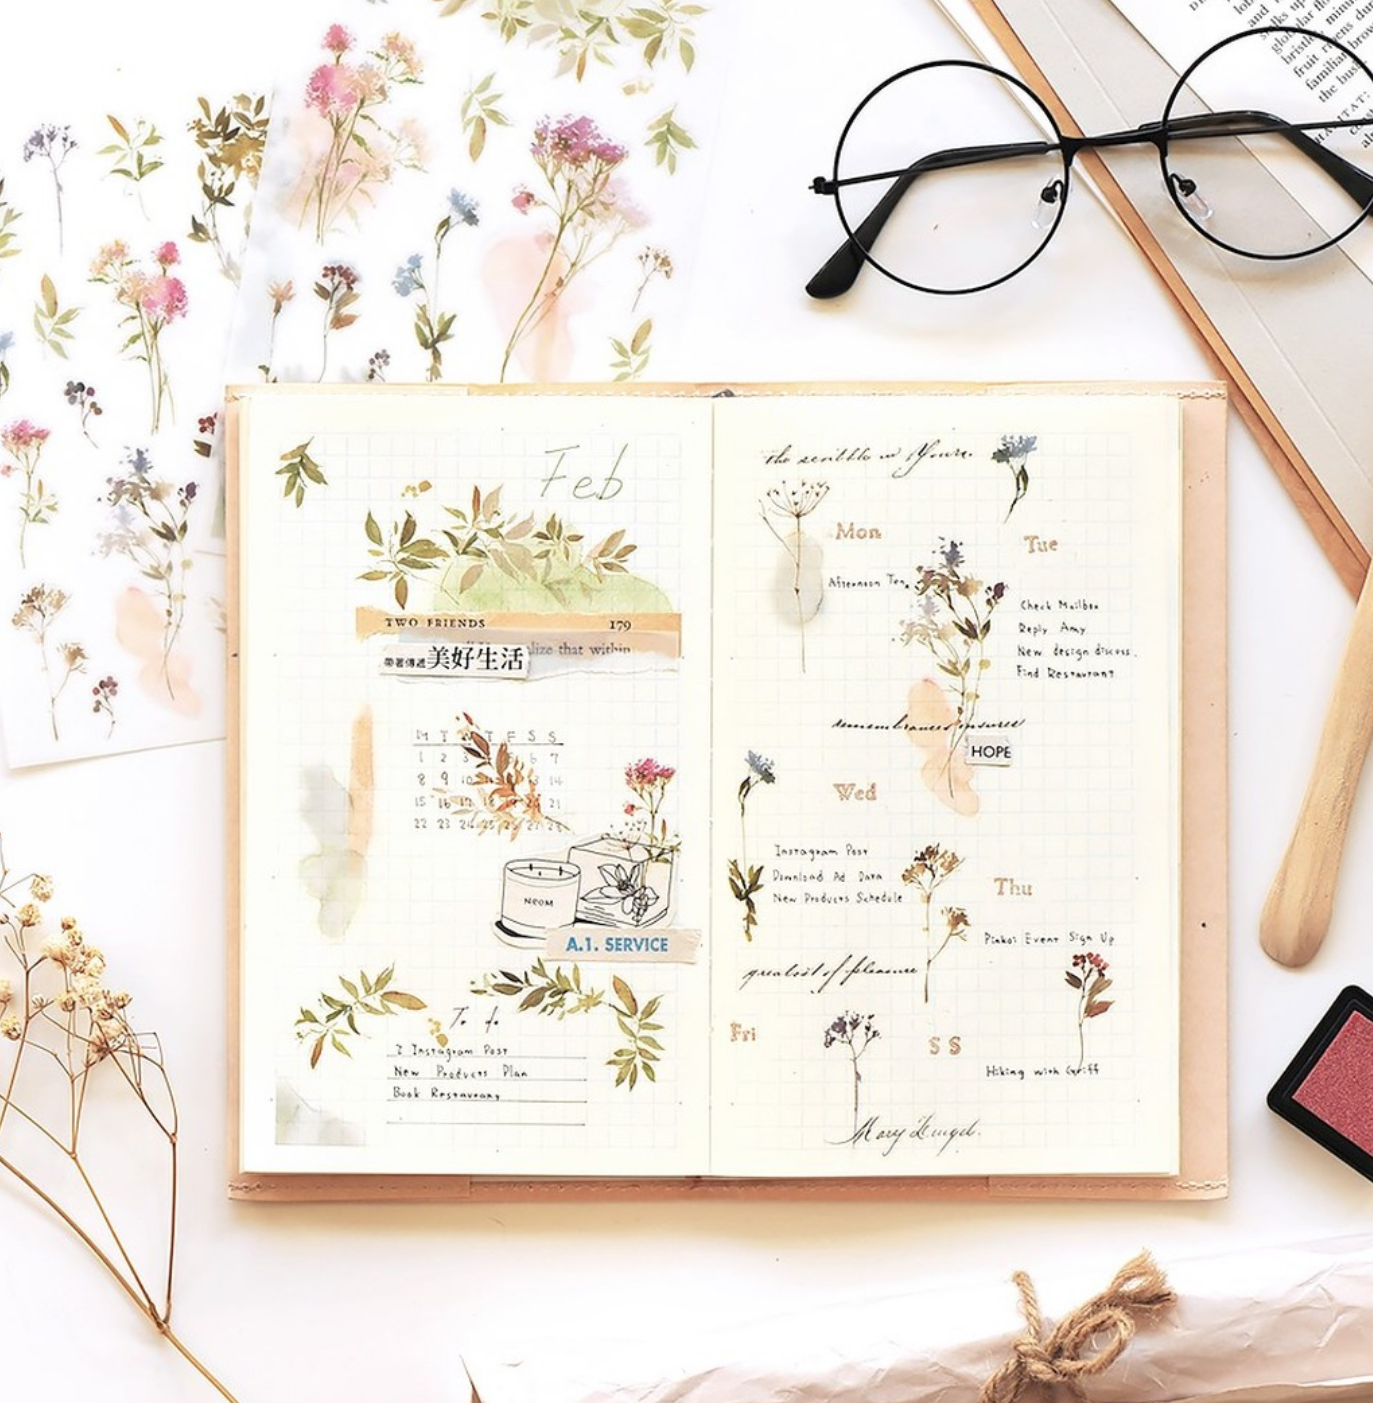 Feb
TWO FRIENDS 179
lize that within
帶著傳遞美好生活
M T W T F S S
1 2 3 6 7
8 9 10 13 14
15 16 17 18 19 20 21
22 23 24 25 26 27 28
NEOM
A.1. SERVICE
To do
2 Instagram Post
New Products Plan
Book Restaurant
Mon
Afternoon Tea
Tue
Check Mailbox
Reply Amy
New design discuss.
Find Restaurant
remembrances insures
HOPE
Wed
Instagram Post
Download Ad Data
New Products Schedule
Thu
Pinkoi Event Sign Up
greatest of pleasure
Fri
S S
Hiking with Griff